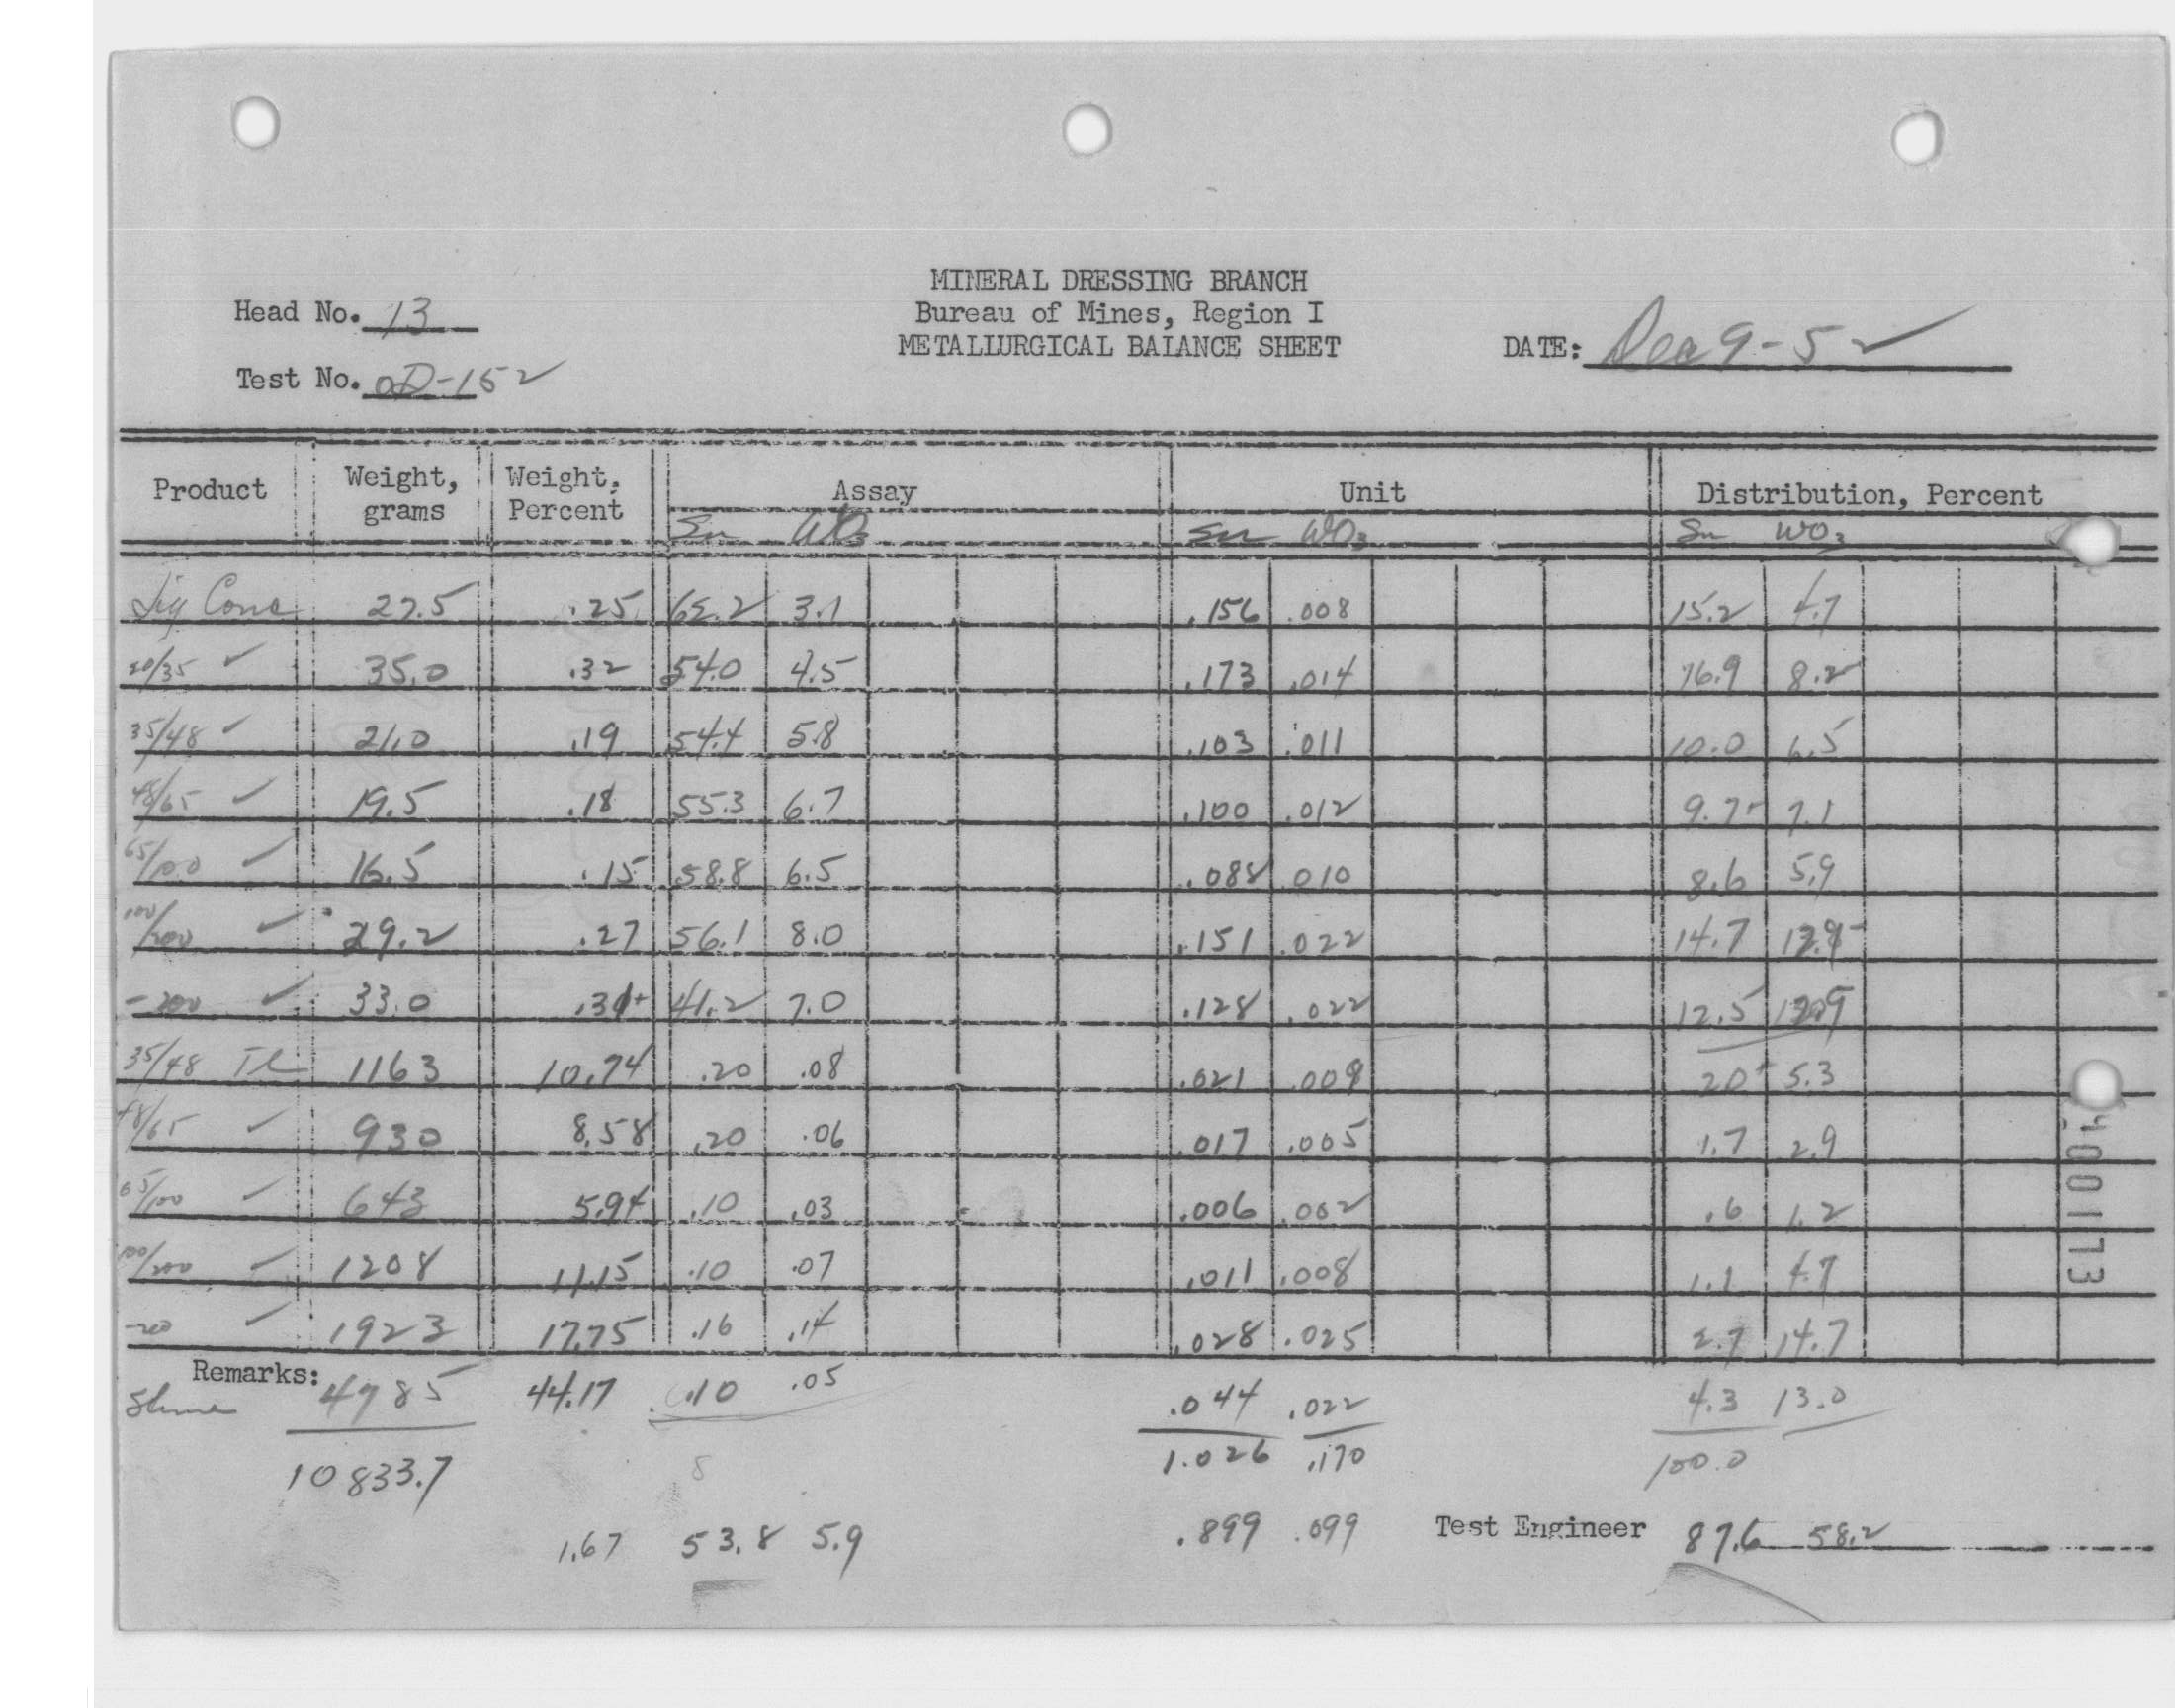 MINERAL DRESSING BRANCH
Head No. 13 Bureau of Mines, Region I
METALLURGICAL BALANCE SHEET DATE: Dec 9-52
Test No. OD-152
Product Weight, grams Weight, Percent Assay Unit Distribution, Percent
Sn WO3 Sn WO3 Sn WO3
Jig Conc 27.5 .25 62.2 3.1 .156 .008 15.2 4.7
20/35 ✓ 35.0 .32 54.0 4.5 .173 .014 16.9 8.2
35/48 ✓ 21.0 .19 54.4 5.8 .103 .011 10.0 6.5
48/65 ✓ 19.5 .18 55.3 6.7 .100 .012 9.7- 7.1
65/100 ✓ 16.5 .15 58.8 6.5 .088 .010 8.6 5.9
100/200 ✓ 29.2 .27 56.1 8.0 .151 .022 14.7 12.9-
-200 ✓ 33.0 .31+ 41.2 7.0 .128 .022 12.5 12.9
35/48 Tl 1163 10.74 .20 .08 .021 .009 2.0+ 5.3
48/65 ✓ 930 8.58 .20 .06 .017 .005 1.7 2.9
65/100 ✓ 643 5.94 .10 .03 .006 .002 .6 1.2
100/200 ✓ 1208 11.15 .10 .07 .011 .008 1.1 4.7
-200 ✓ 1923 17.75 .16 .14 .028 .025 2.7 14.7
Remarks:
Slime 4785 44.17 .10 .05 .044 .022 4.3 13.0
10833.7 1.026 .170 100.0
1.67 53.8 5.9 .899 .099 Test Engineer 87.6 58.2
400173